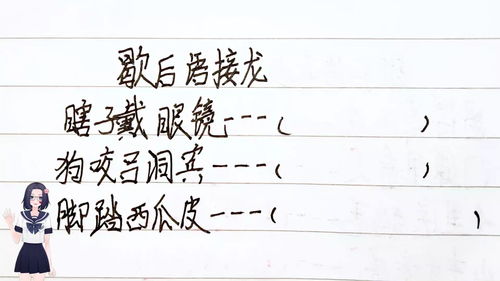 歇后语接龙
瞎子戴眼镜---( )
狗咬吕洞宾---( )
脚踏西瓜皮---( )